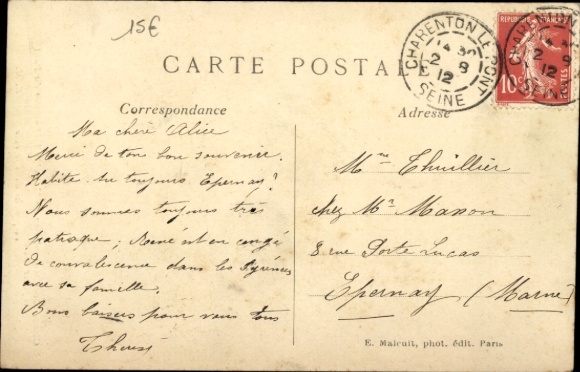 15€
CARTE POSTALE
CHARENTON LE PONT
14 30
2 - 8
12
SEINE
REPUBLIQUE FRANÇAISE
10c
POSTES
Correspondance
Adresse
Ma chère Alice
Merci de ton bon souvenir.
Habite tu toujours Epernay?
Nous sommes toujours très
patraque; René est en congé
de convalescence dans les Pyrénées
avec sa famille.
Bons baisers pour vous tous
Therese
Mme Thuillier
chez Mr Masson
8 rue Porte Lucas
Epernay (Marne)
E. Malcuit, phot. édit. Paris